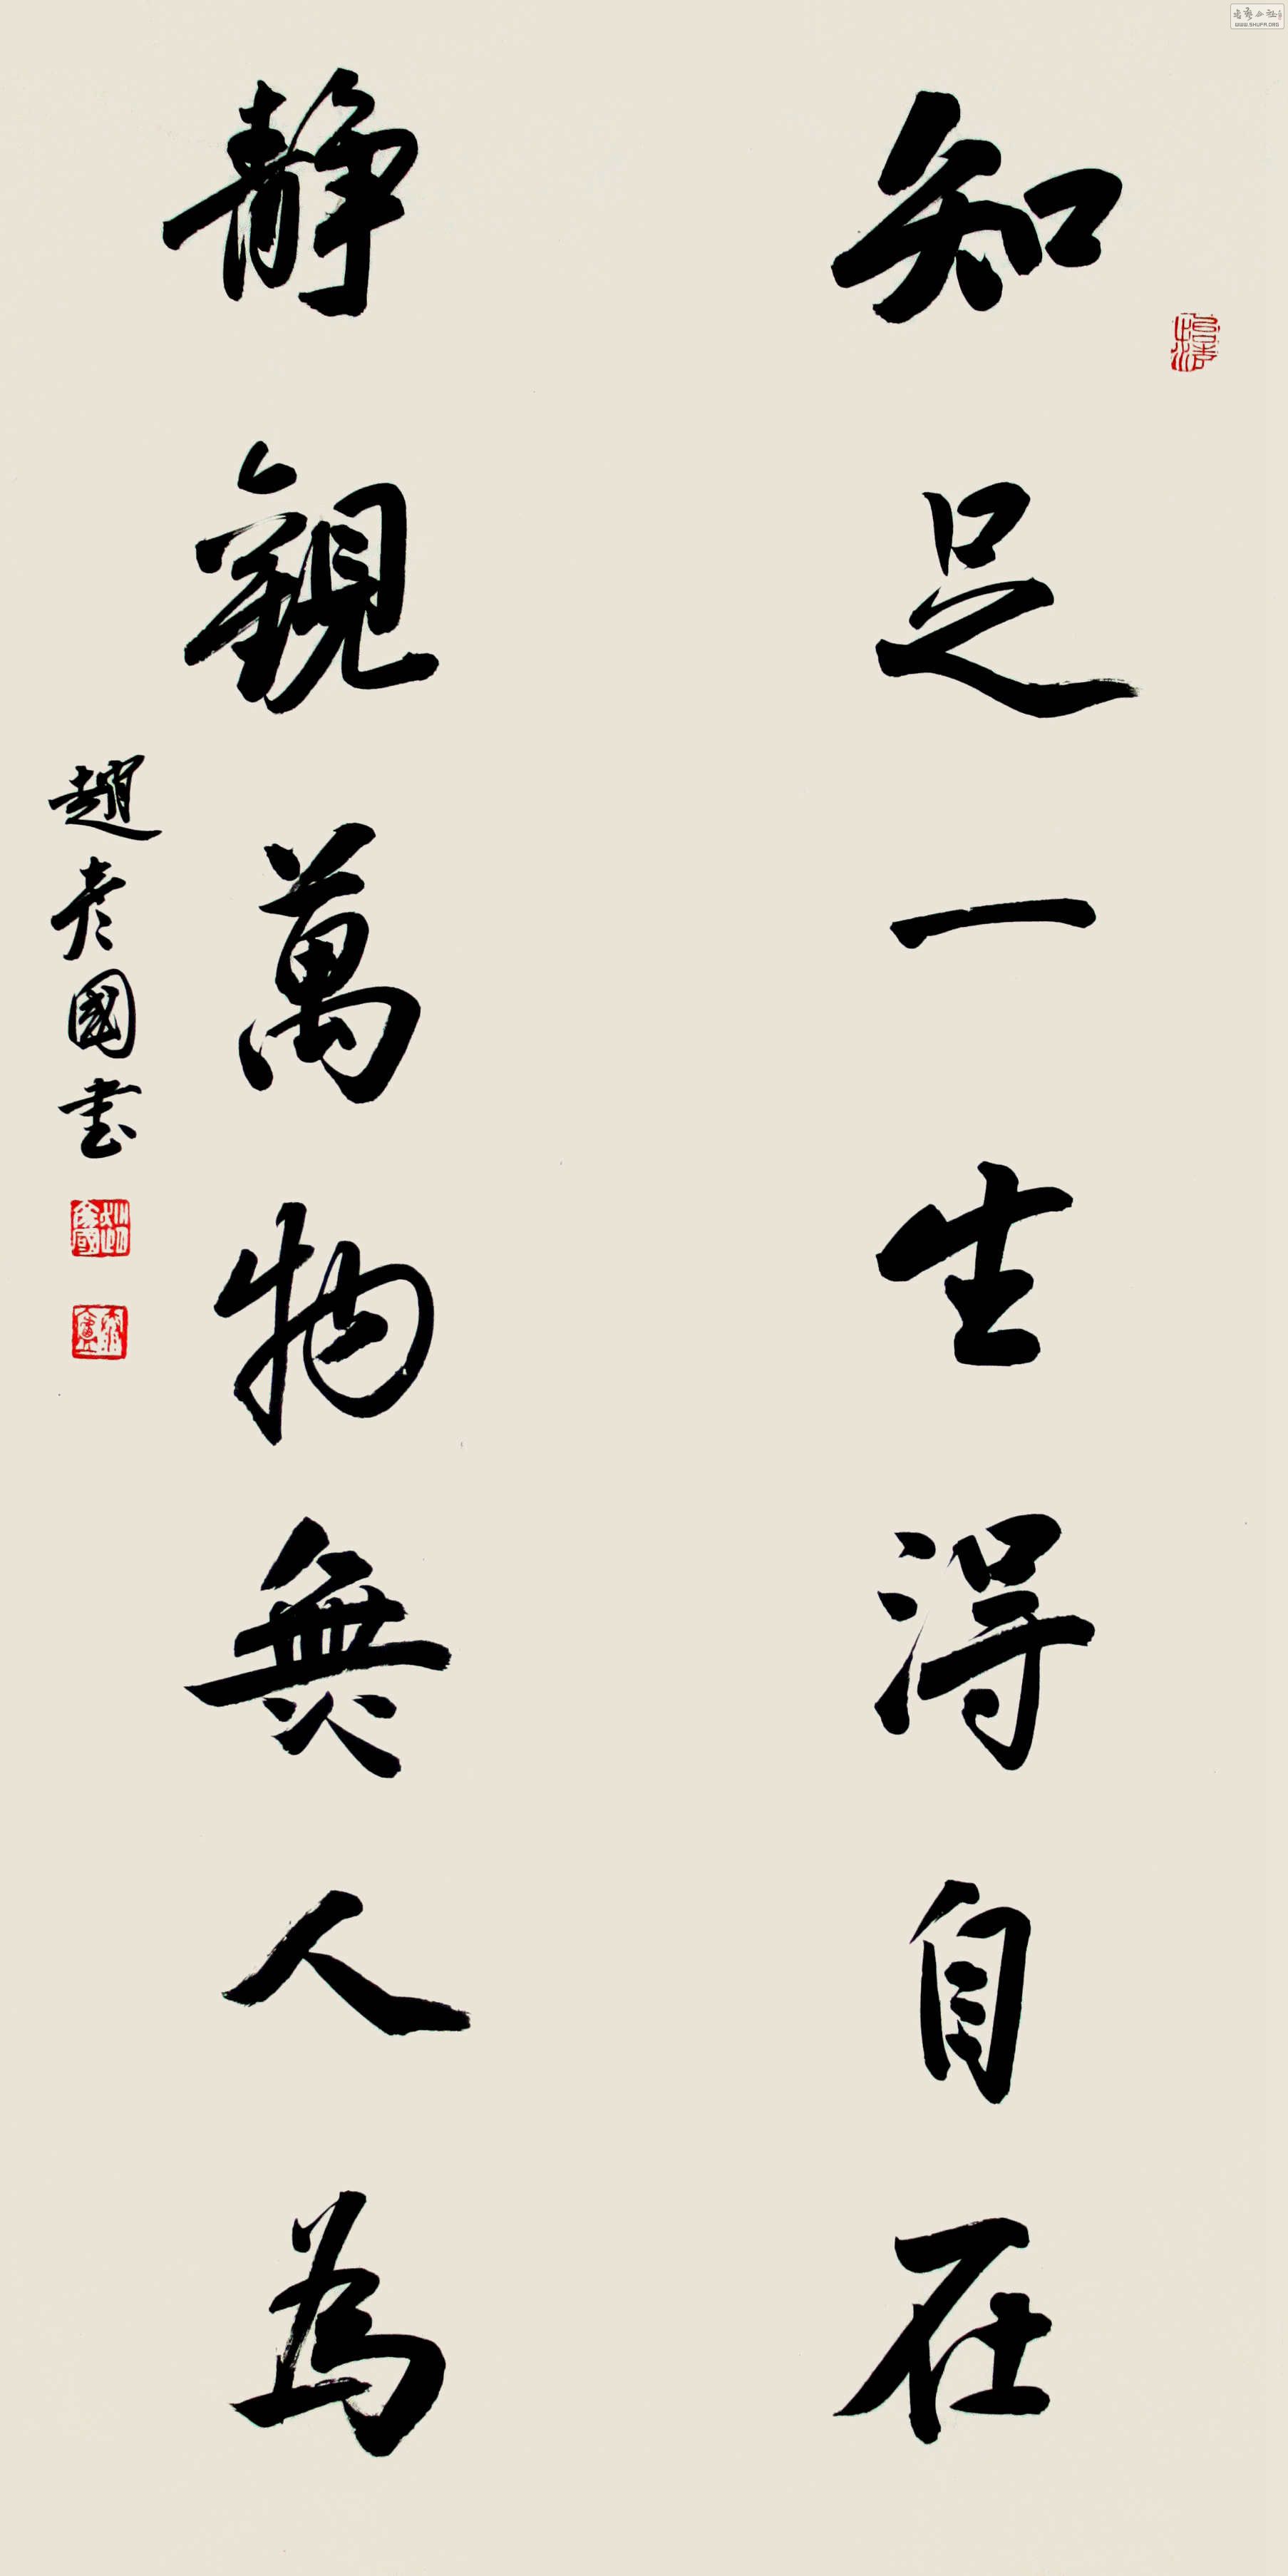 知足一生得自在
靜觀萬物無人為
趙彥國書
WWW.SHUFA.ORG